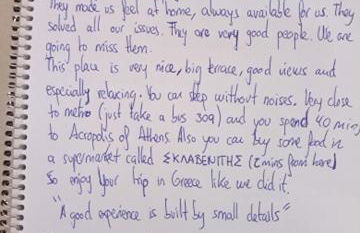 They made us feel at home, always available for us. They
solved all our issues. They are very good people. We are
going to miss them.
This place is very nice, big terrace, good views and
especially relaxing. You can sleep without noises. Very close
to metro (just take a bus 309) and you spend 40 mins
to Acropolis of Athens. Also you can buy some food in
a supermarket called ΣΚΛΑΒΕΝΙΤΗΣ (2 mins from here)
So enjoy your trip in Greece like we did it.
"A good experience is built by small details"